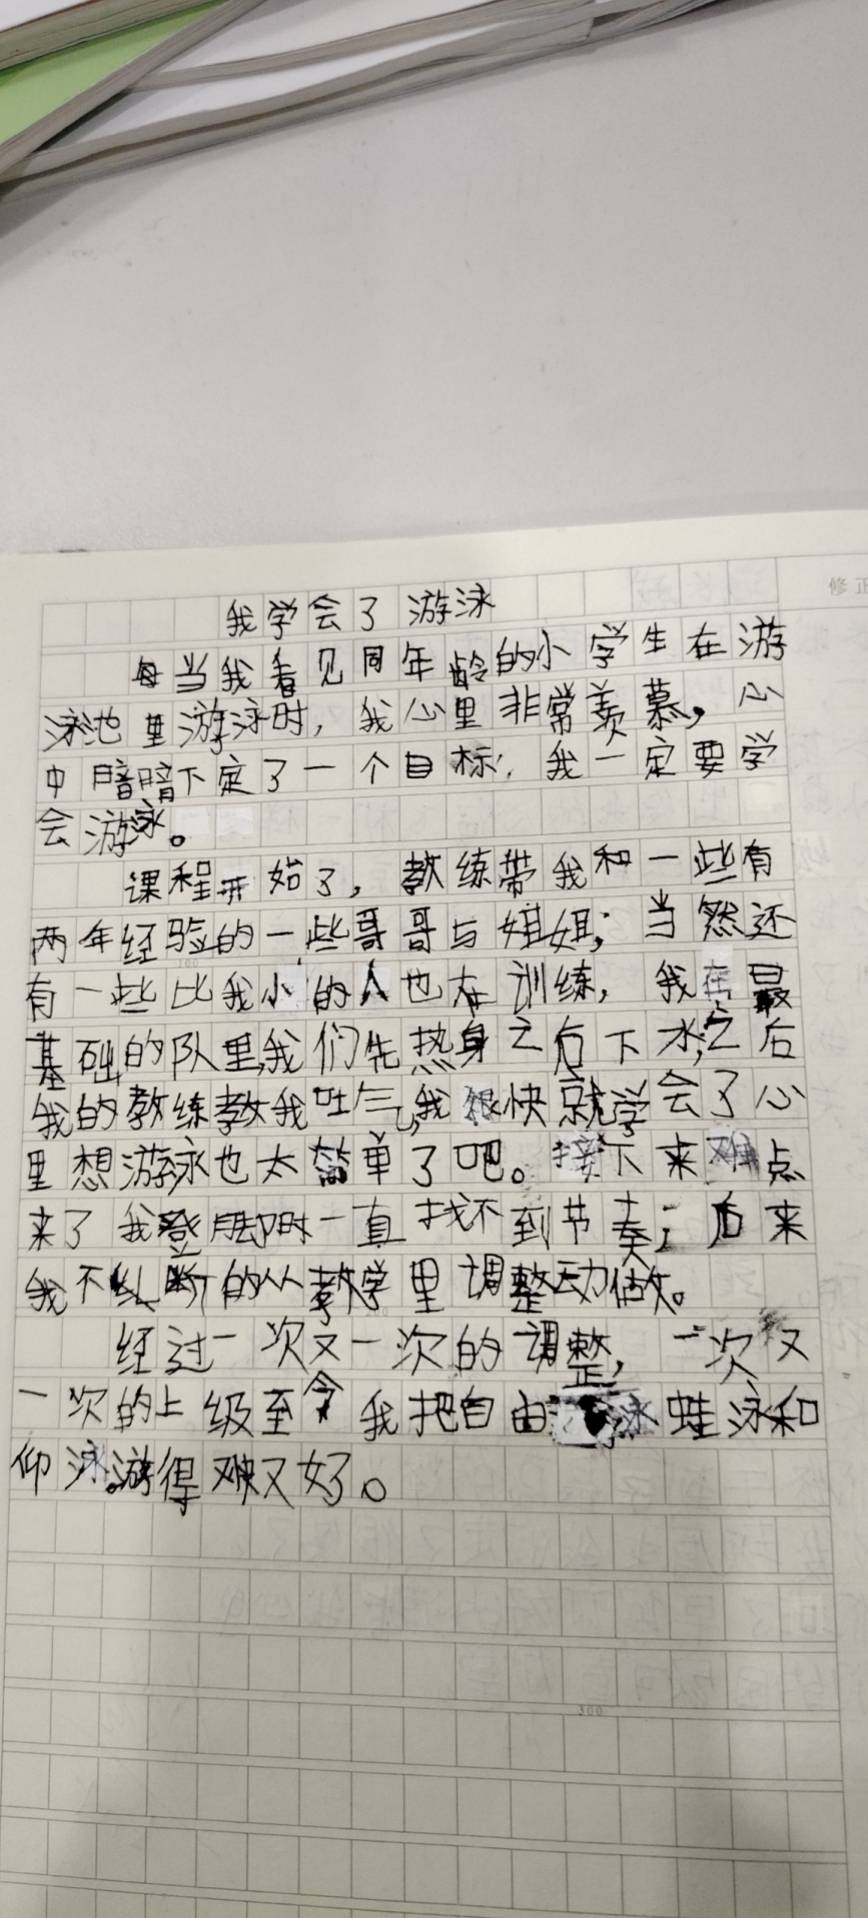 修正
我学会了游泳
每当我看见同年龄的小学生在游
泳池里游泳时，我心里非常羡慕，心
中暗暗下定了一个目标，我一定要学
会游泳。
课程开始了，教练带我和一些有
两年经验的一些哥哥与姐姐；当然还
有一些比我小的人也在训练，我在最
基础的队里，我们先热身之后下水，之后
我的教练教我吐气，我很快就学会了心
里想游泳也太简单了吧。接下来难点
来了我登脚时一直找不到节奏；后来
我不断的从教学里调整动做。
经过一次又一次的调整，一次又
一次的上级至今我把自由泳蛙泳和
仰泳。游得又快又好。
300